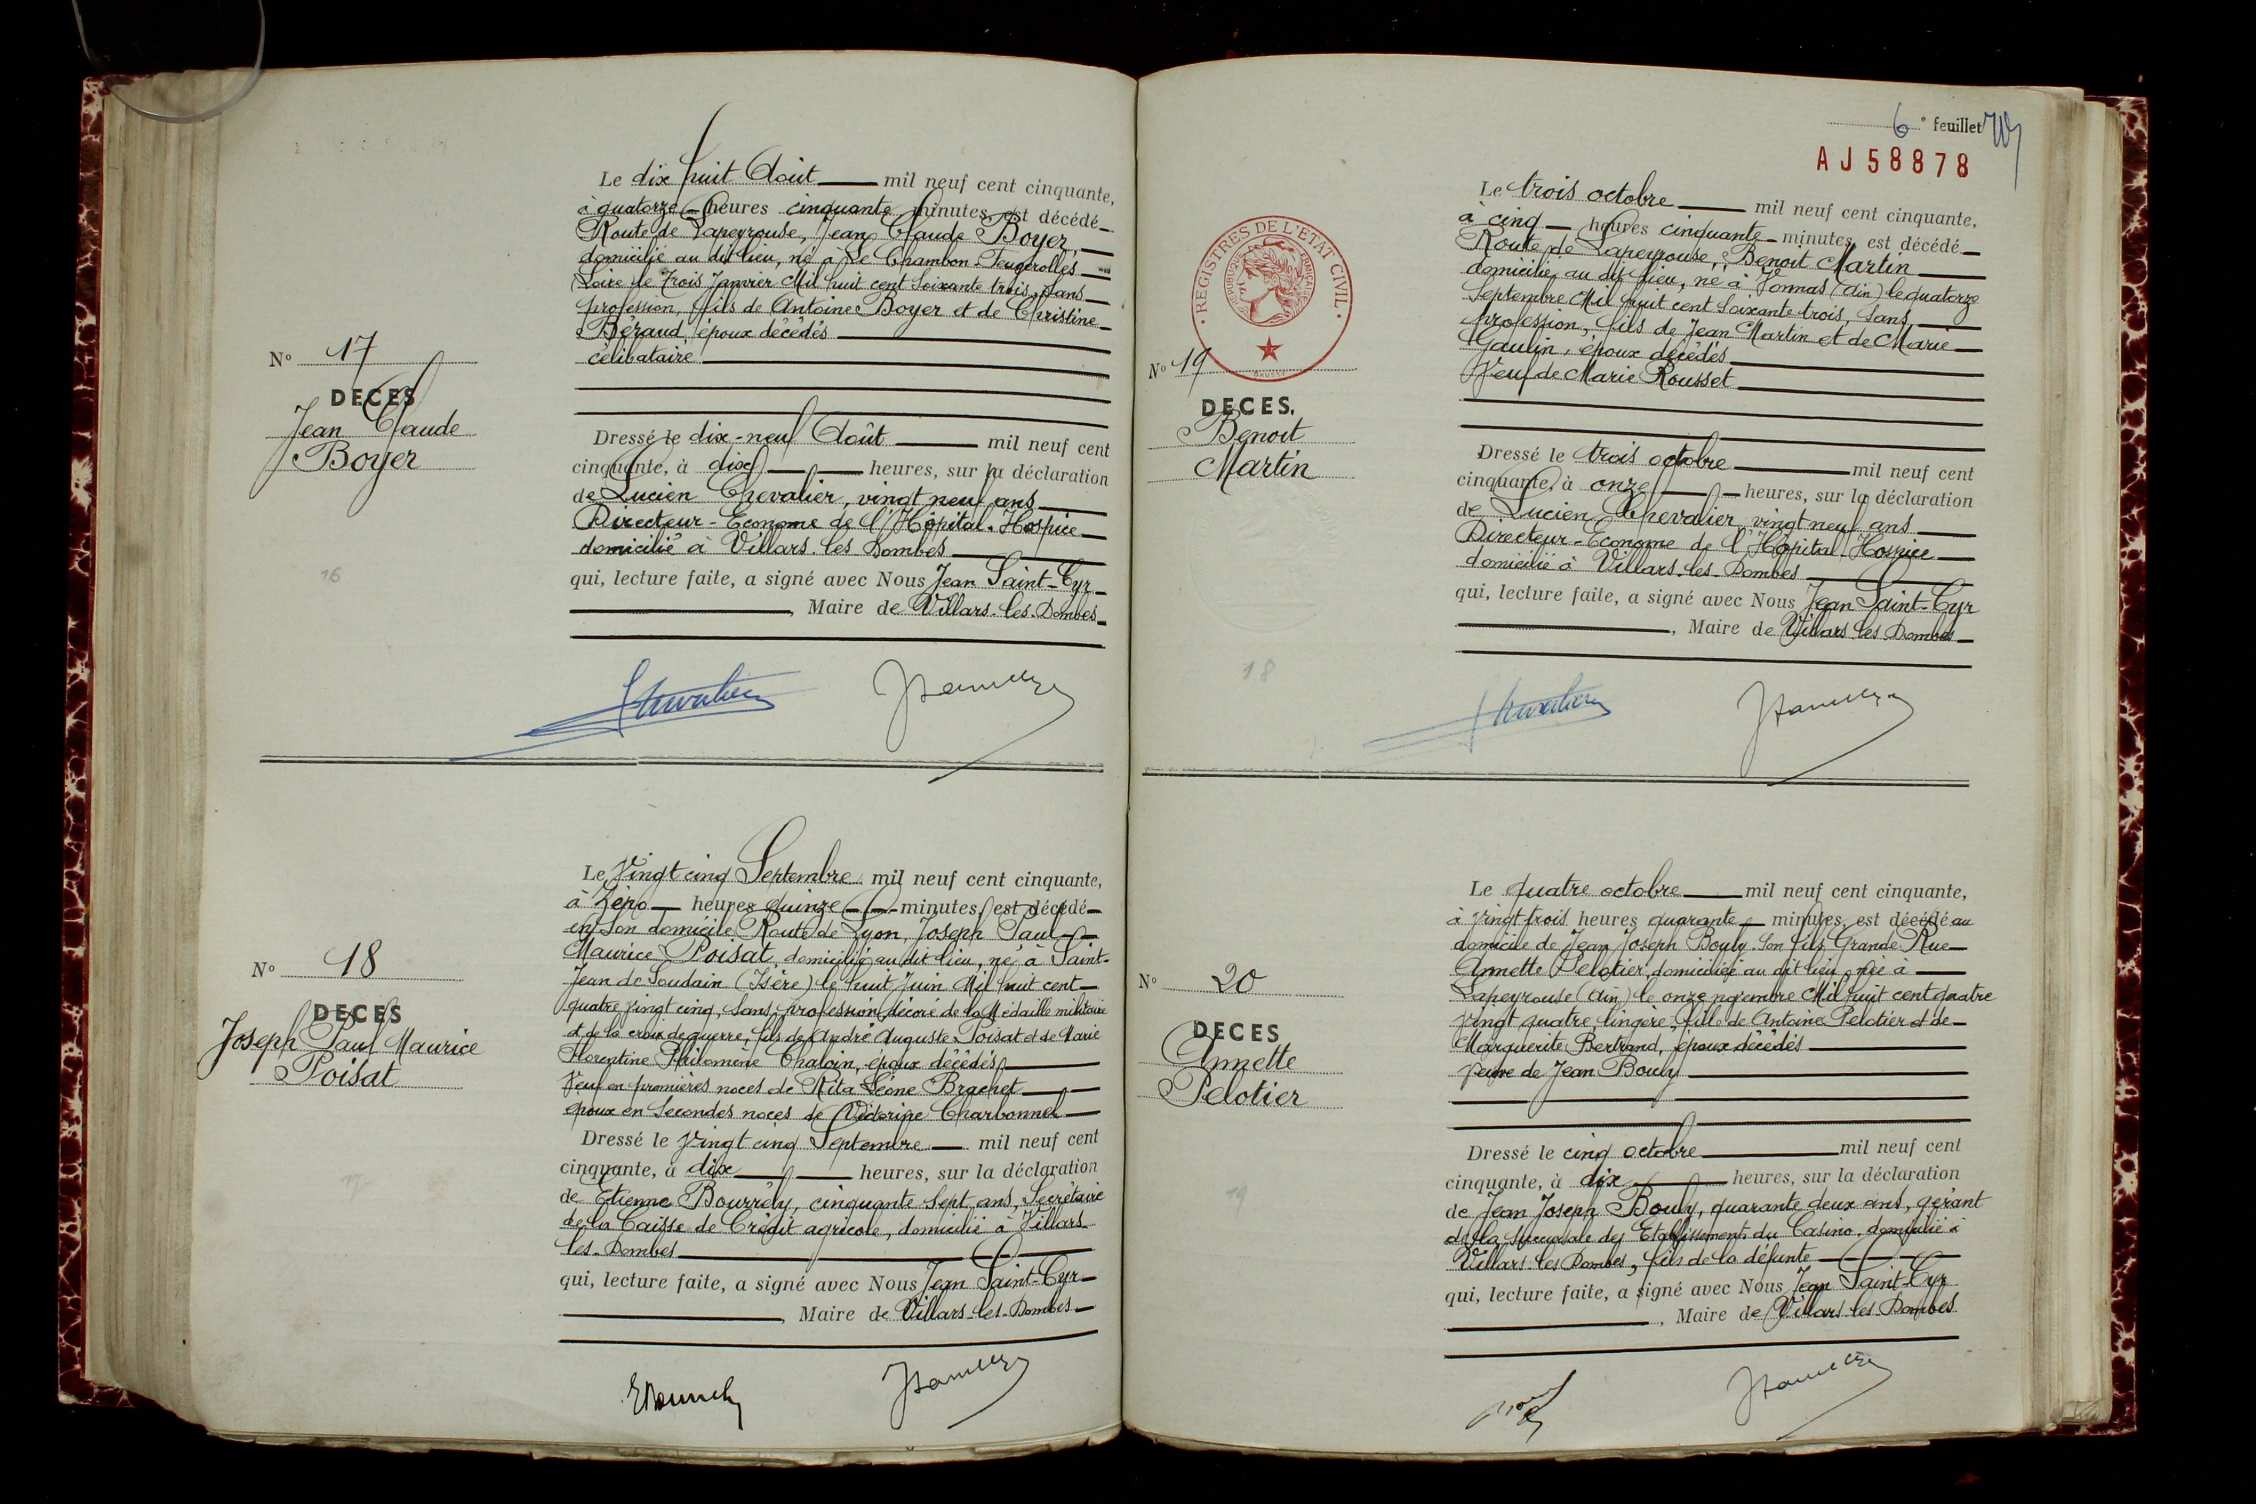 Le dix huit Août mil neuf cent cinquante,
à quatorze heures cinquante minutes, est décédé
Route de Lapeyrouse, Jean Claude Boyer,
domicilié au dit lieu, né à Le Chambon-Feugerolles
Loire le trois Janvier Mil huit cent soixante trois, sans
profession, fils de Antoine Boyer et de Christine
Béraud, époux décédés
célibataire
N° 17
DECES
Jean Claude
Boyer
Dressé le dix-neuf Août mil neuf cent
cinquante, à dix heures, sur la déclaration
de Lucien Chevalier, vingt neuf ans
Directeur-Econome de l'Hôpital-Hospice
domicilié à Villars-les-Dombes
qui, lecture faite, a signé avec Nous Jean Saint-Cyr
, Maire de Villars-les-Dombes
16
Le vingt cinq Septembre mil neuf cent cinquante,
à zéro heures quinze minutes, est décédé
en son domicile Route de Lyon, Joseph Paul
Maurice Poisat, domicilié au dit lieu, né à Saint-
Jean de Soudain (Isère) le huit Juin Mil huit cent
quatre vingt cinq, sans profession, décoré de la Médaille militaire
et de la croix de guerre, fils de André Auguste Poisat et de Marie
Florentine Philomène Chaloin, époux décédés
Veuf en premières noces de Rita Léone Brachet
époux en secondes noces de Victorine Charbonnel
N° 18
DECES
Joseph Paul Maurice
Poisat
Dressé le vingt cinq Septembre mil neuf cent
cinquante, à dix heures, sur la déclaration
de Etienne Bourrély, cinquante sept ans, Secrétaire
de la Caisse de Crédit agricole, domicilié à Villars
les-Dombes
qui, lecture faite, a signé avec Nous Jean Saint-Cyr
, Maire de Villars-les-Dombes
6e feuillet
AJ58878
REGISTRES DE L'ETAT CIVIL
REPUBLIQUE FRANÇAISE
Le trois octobre mil neuf cent cinquante,
à cinq heures cinquante minutes, est décédé
Route de Lapeyrouse, Benoit Martin
domicilié au dit lieu, né à Vonnas (Ain) le quatorze
Septembre Mil huit cent soixante trois, sans
profession, fils de Jean Martin et de Marie
Gaulin, époux décédés
Veuf de Marie Rousset
N° 19
DECES.
Benoit
Martin
Dressé le trois octobre mil neuf cent
cinquante, à onze heures, sur la déclaration
de Lucien Chevalier, vingt neuf ans
Directeur-Econome de l'Hôpital-Hospice
domicilié à Villars-les-Dombes
qui, lecture faite, a signé avec Nous Jean Saint-Cyr
, Maire de Villars-les-Dombes
18
Le quatre octobre mil neuf cent cinquante,
à vingt-trois heures quarante minutes, est décédé au
domicile de Jean Joseph Bouly son fils, Grande Rue
Annette Pelotier, domiciliée au dit lieu, née à
Lapeyrouse (Ain) le onze novembre Mil huit cent quatre
vingt quatre, lingère, fille de Antoine Pelotier et de
Marguerite Bertrand, époux décédés
veuve de Jean Bouly
N° 20
DECES
Annette
Pelotier
Dressé le cinq octobre mil neuf cent
cinquante, à dix heures, sur la déclaration
de Jean Joseph Bouly, quarante deux ans, gérant
de la succursale des Etablissements du Casino, domicilié à
Villars-les-Dombes, fils de la défunte
qui, lecture faite, a signé avec Nous Jean Saint-Cyr
, Maire de Villars-les-Dombes
19